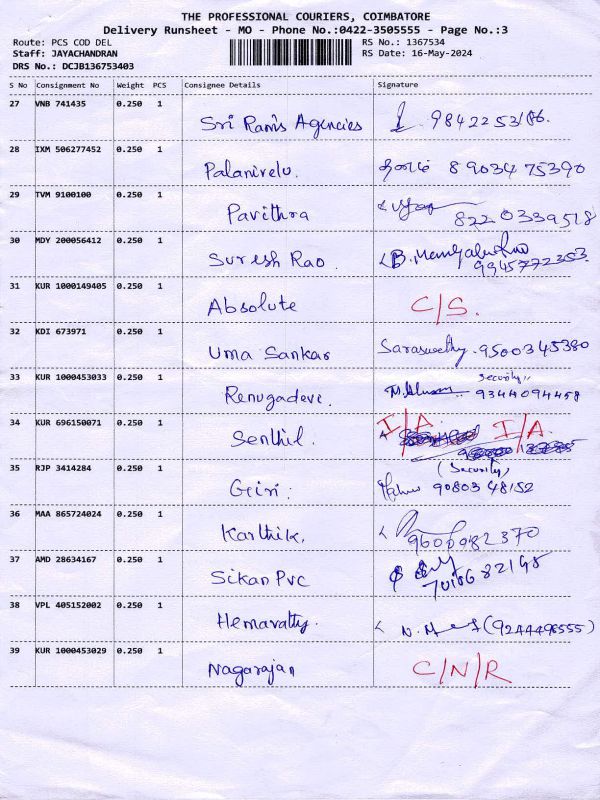 THE PROFESSIONAL COURIERS, COIMBATORE
Delivery Runsheet - MO - Phone No.:0422-3505555 - Page No.:3
Route: PCS COD DEL RS No.: 1367534
Staff: JAYACHANDRAN RS Date: 16-May-2024
DRS No.: DCJB136753403
S No Consignment No Weight PCS Consignee Details Signature
27 VNB 741435 0.250 1 Sri Ram's Agencies 9842253186.
28 IXM 506277452 0.250 1 Palanivelu. 8903475390
29 TVM 9100100 0.250 1 Pavithra 8220339518
30 MDY 200056412 0.250 1 Suresh Rao.
31 KUR 1000149405 0.250 1 Absolute C/S.
32 KDI 673971 0.250 1 Uma Sankar Saraswathy. 9500345380
33 KUR 1000453033 0.250 1 Renugadevi. Security,, 9344094458
34 KUR 696150071 0.250 1 Senthil. I/A I/A.
35 RJP 3414284 0.250 1 Giri. (Security) 9080348152
36 MAA 865724024 0.250 1 Karthik. 9600982370
37 AMD 28634167 0.250 1 Sikan Pvc
38 VPL 405152002 0.250 1 Hemavathy. (9244498555)
39 KUR 1000453029 0.250 1 Nagarajan C/N/R